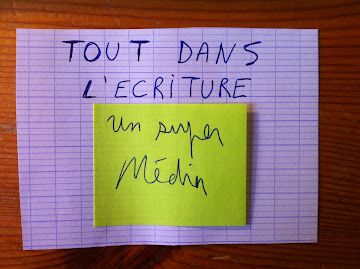 TOUT DANS
L'ECRITURE
un super
Médin